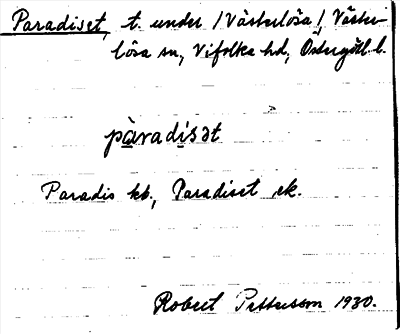 Paradiset, t. under /Västerlösa/, Väster-
lösa sn, Vifolka hd, Östergötl. l.
pàradísət
Paradis kb., Paradiset ek.
Robert Pettersson 1930.